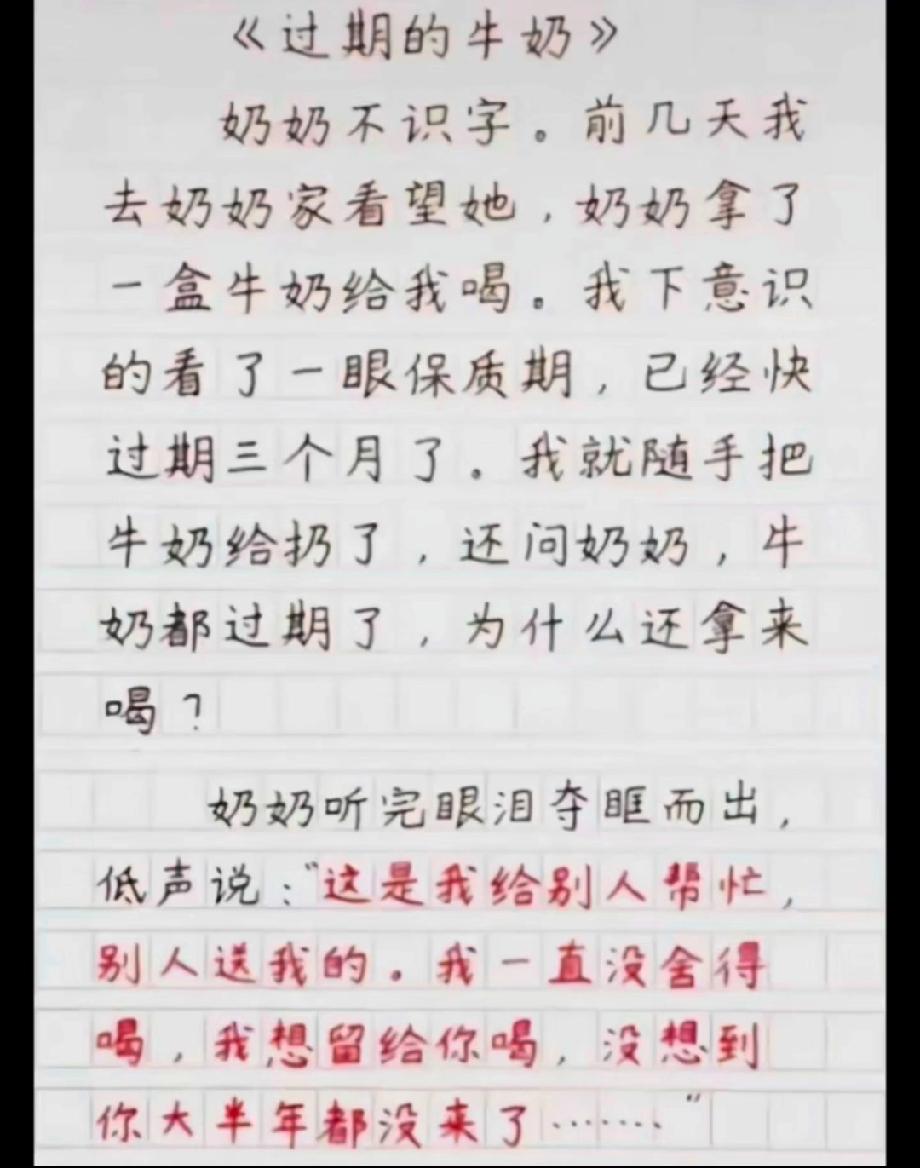 《过期的牛奶》
奶奶不识字。前几天我
去奶奶家看望她，奶奶拿了
一盒牛奶给我喝。我下意识
的看了一眼保质期，已经快
过期三个月了。我就随手把
牛奶给扔了，还问奶奶，牛
奶都过期了，为什么还拿来
喝？
奶奶听完眼泪夺眶而出，
低声说：“这是我给别人帮忙，
别人送我的。我一直没舍得
喝，我想留给你喝，没想到
你大半年都没来了……”